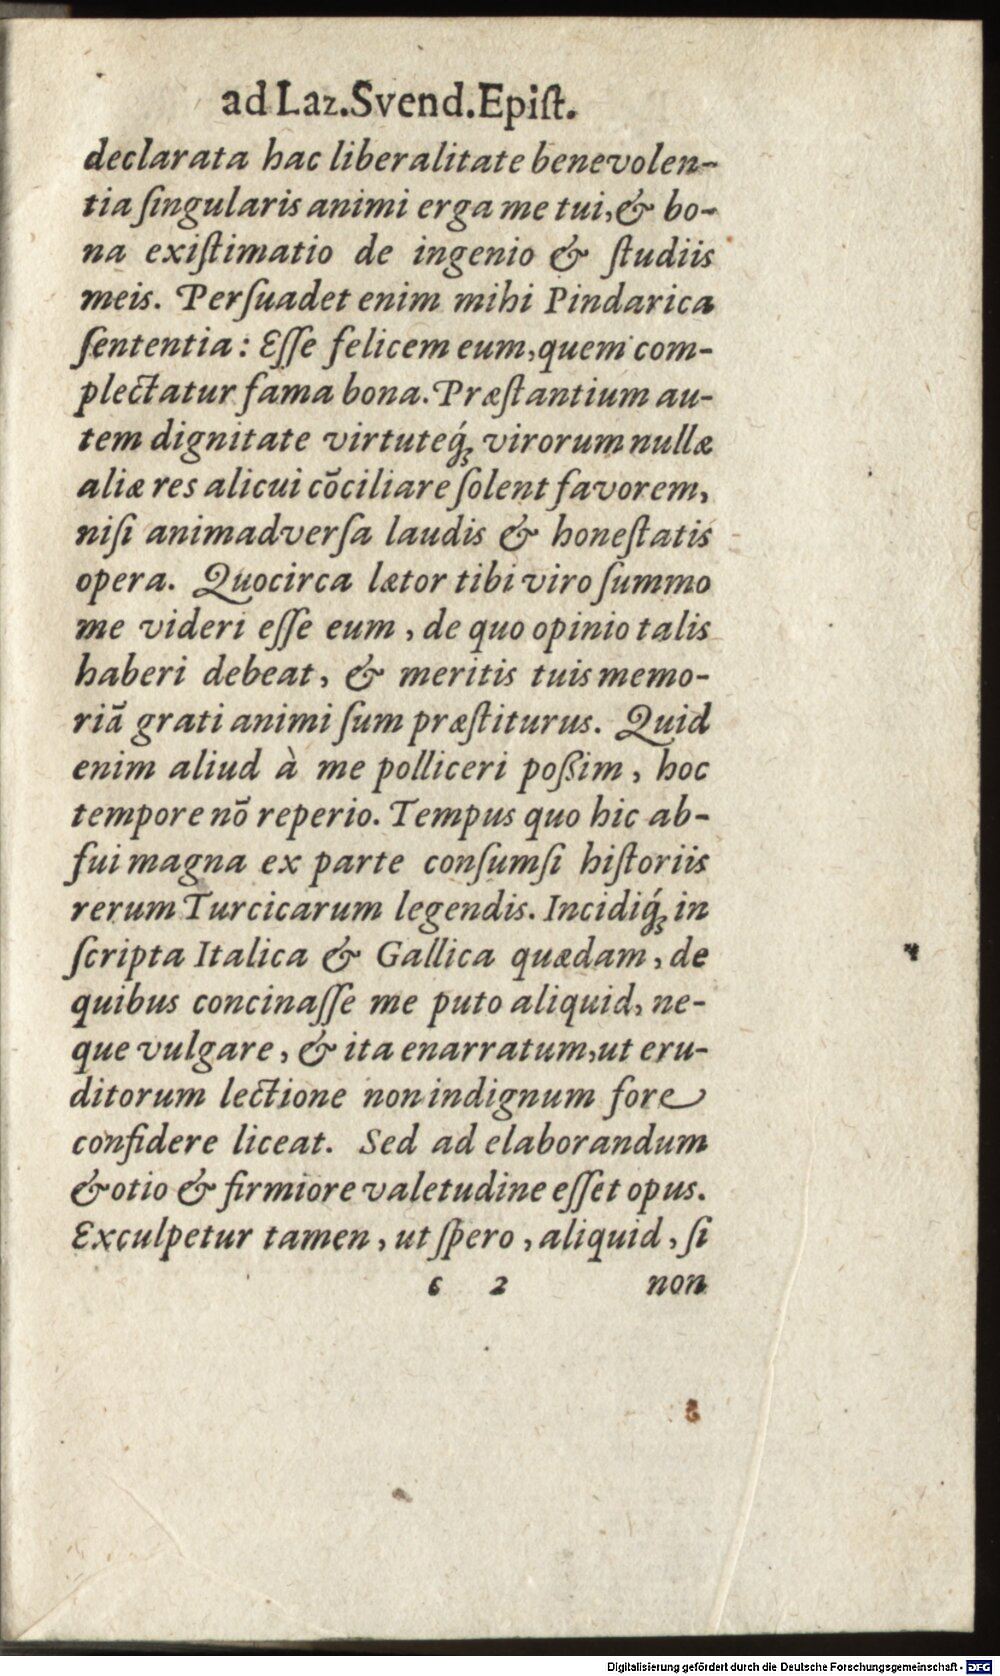 ad Laz. Svend. Epiſt.
declarata hac liberalitate benevolen-
tia ſingularis animi erga me tui, & bo-
na exiſtimatio de ingenio & ſtudiis
meis. Perſuadet enim mihi Pindarica
ſententia: Eſſe felicem eum, quem com-
plectatur fama bona. Præſtantium au-
tem dignitate virtuteq́; virorum nullæ
aliæ res alicui cōciliare ſolent favorem,
niſi animadverſa laudis & honeſtatis
opera. Quocirca lætor tibi viro ſummo
me videri eſſe eum, de quo opinio talis
haberi debeat, & meritis tuis memo-
riā grati animi ſum præſtiturus. Quid
enim aliud à me polliceri poßim, hoc
tempore nō reperio. Tempus quo hic ab-
fui magna ex parte conſumſi hiſtoriis
rerum Turcicarum legendis. Incidiq́; in
ſcripta Italica & Gallica quædam, de
quibus concinaſſe me puto aliquid, ne-
que vulgare, & ita enarratum, ut eru-
ditorum lectione non indignum fore
confidere liceat. Sed ad elaborandum
& otio & firmiore valetudine eſſet opus.
Exculpetur tamen, ut ſpero, aliquid, ſi
6 2 non
Digitalisierung gefördert durch die Deutsche Forschungsgemeinschaft - DFG